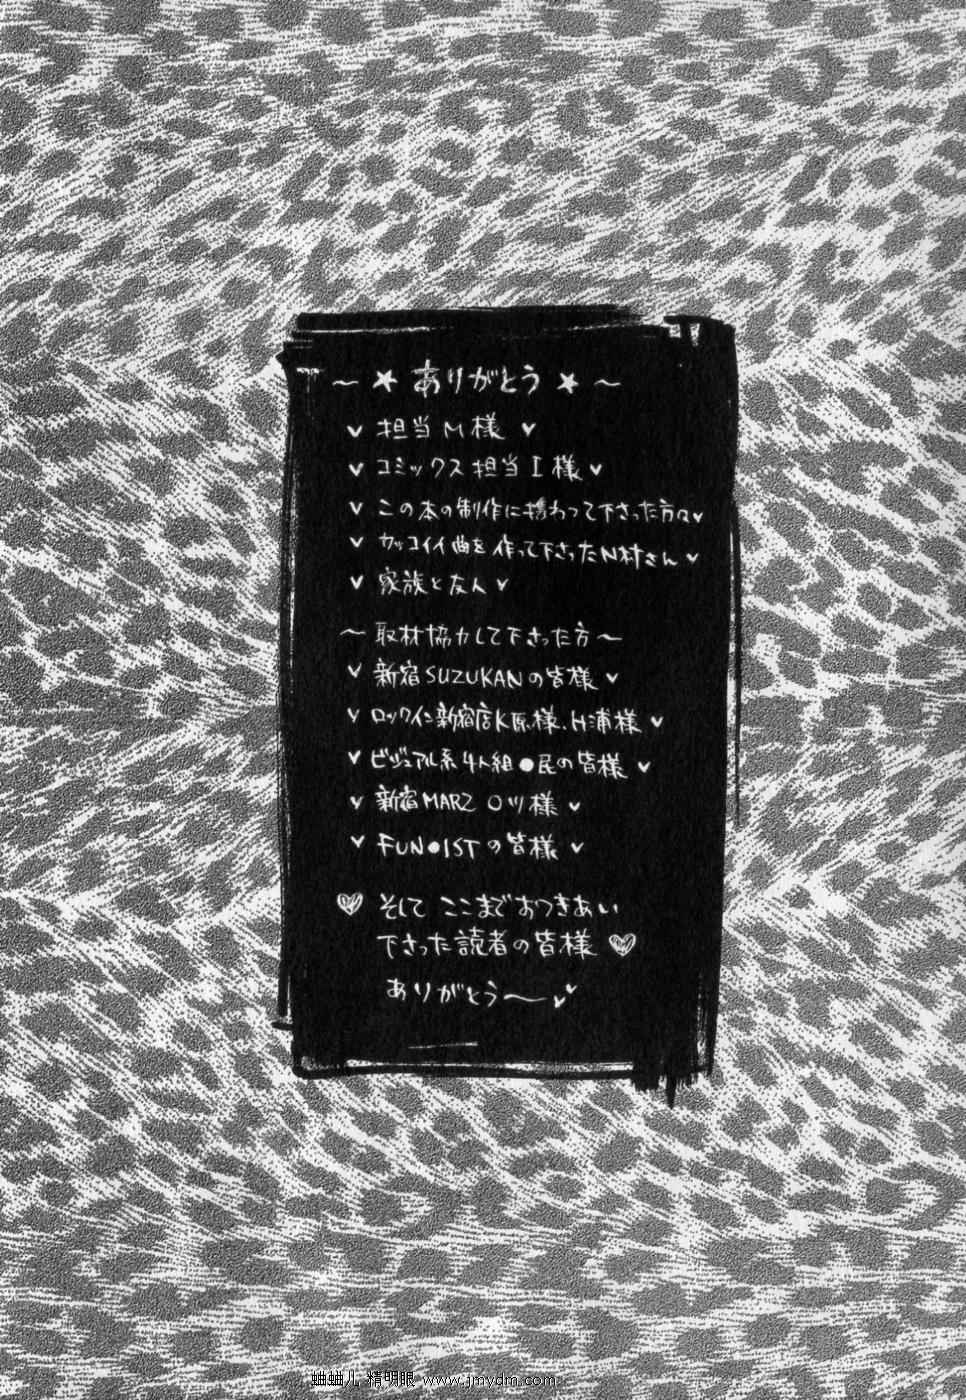 ～★ありがとう★～
♥ 担当M様 ♥
♥ コミックス担当I様 ♥
♥ この本の制作に携わって下さった方々♥
♥ カッコイイ曲を作って下さったN村さん ♥
♥ 家族と友人 ♥
～取材協力して下さった方～
♥ 新宿SUZUKANの皆様 ♥
♥ ロックイン新宿店K原様、H浦様 ♥
♥ ビジュアル系4人組●民の皆様 ♥
♥ 新宿MARZ Oツ様 ♥
♥ FUN●ISTの皆様 ♥
♥ そして ここまでおつきあい
下さった読者の皆様 ♥
ありがとう～♥♥
蛐蛐儿 精明眼 www.jmydm.com